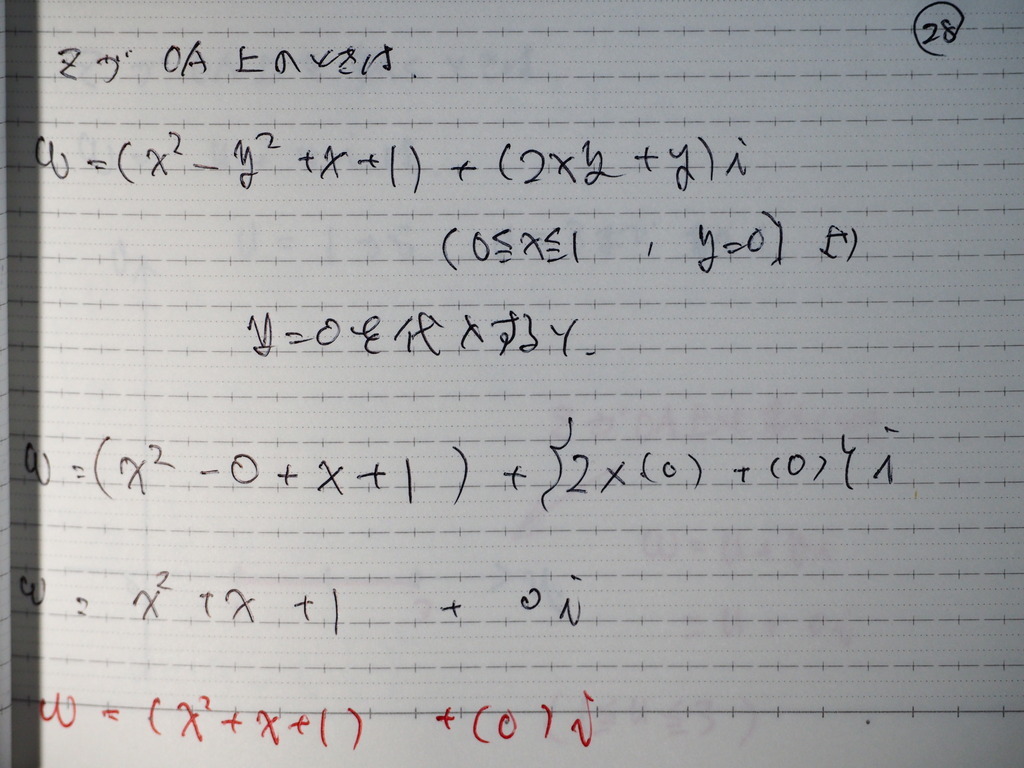 ㉘
zが OA 上のときは.
w = (x² - y² + x + 1) + (2xy + y)i
(0≦x≦1 , y=0) より
y=0を代入すると.
w = (x² - 0 + x + 1) + {2x(0) + (0)}i
w = x² + x + 1 + 0i
w = (x² + x + 1) + (0)i